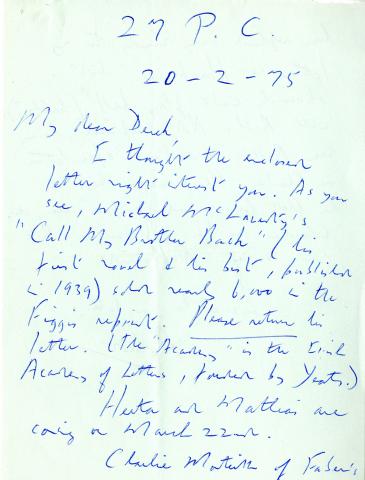 27 P. C.
20 - 2 - 75
My dear Derek,
I thought the enclosed
letter might interest you. As you
see, Michael McLaverty's
"Call My Brother Back" (his
first novel & his best, published
in 1939) sold nearly 6,000 in the
Figgis reprint. Please return his
letter. (The "Academy" is the Irish
Academy of Letters, founded by Yeats.)
Hester and Matthias are
coming on March 22nd.
Charlie Monteith of Faber's